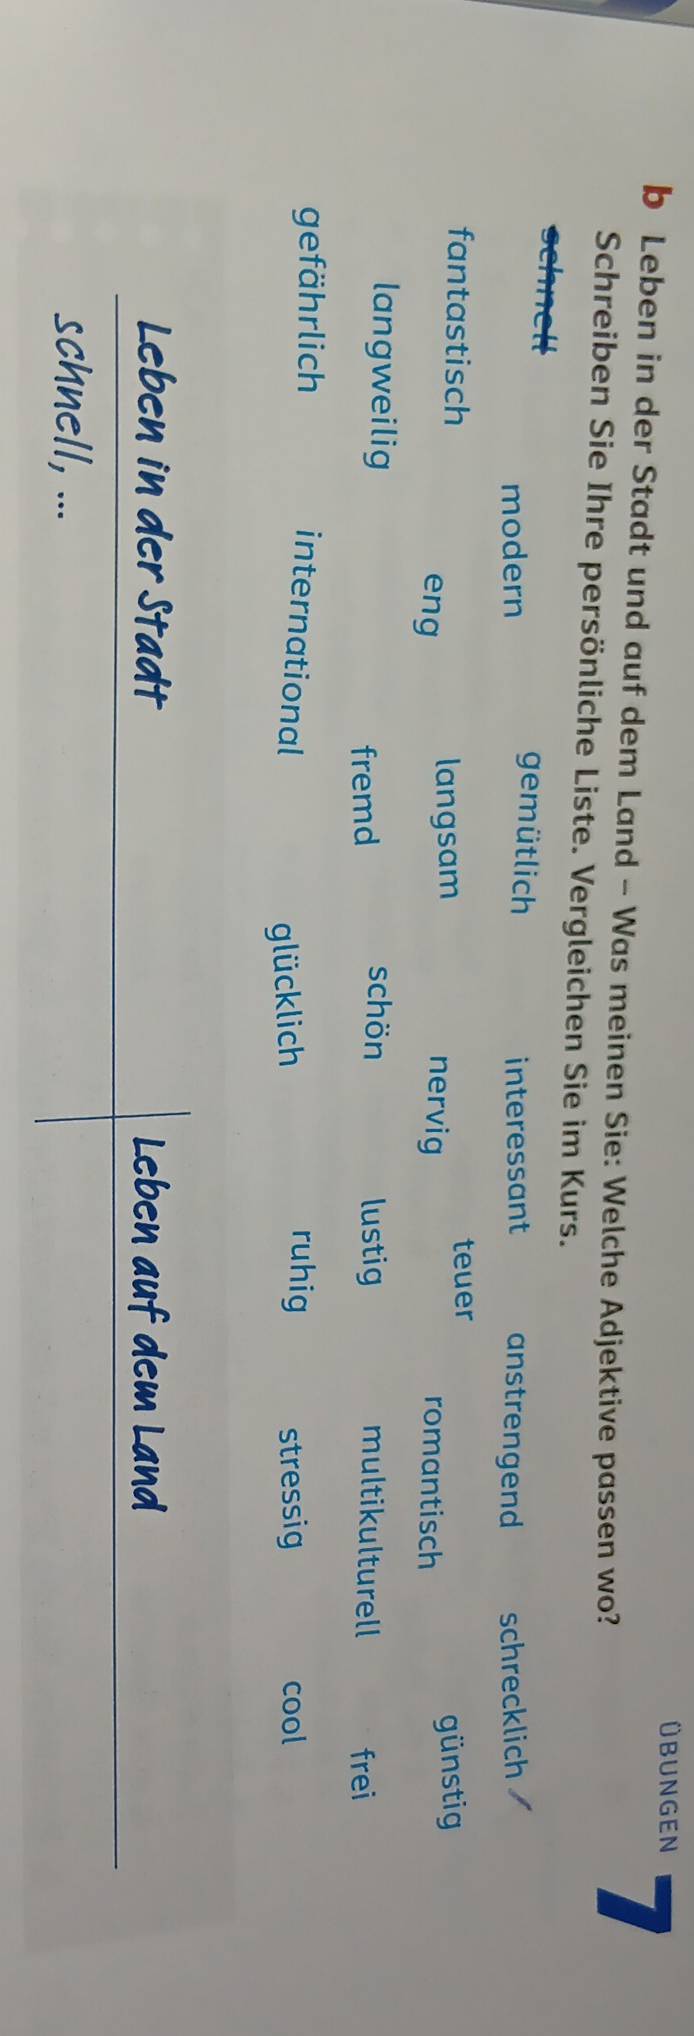 ÜBUNGEN 7
b Leben in der Stadt und auf dem Land – Was meinen Sie: Welche Adjektive passen wo?
Schreiben Sie Ihre persönliche Liste. Vergleichen Sie im Kurs.
schnell modern gemütlich interessant anstrengend schrecklich
fantastisch eng langsam nervig teuer romantisch günstig
langweilig fremd schön lustig multikulturell frei
gefährlich international glücklich ruhig stressig cool
Leben in der Stadt Leben auf dem Land
schnell, ...